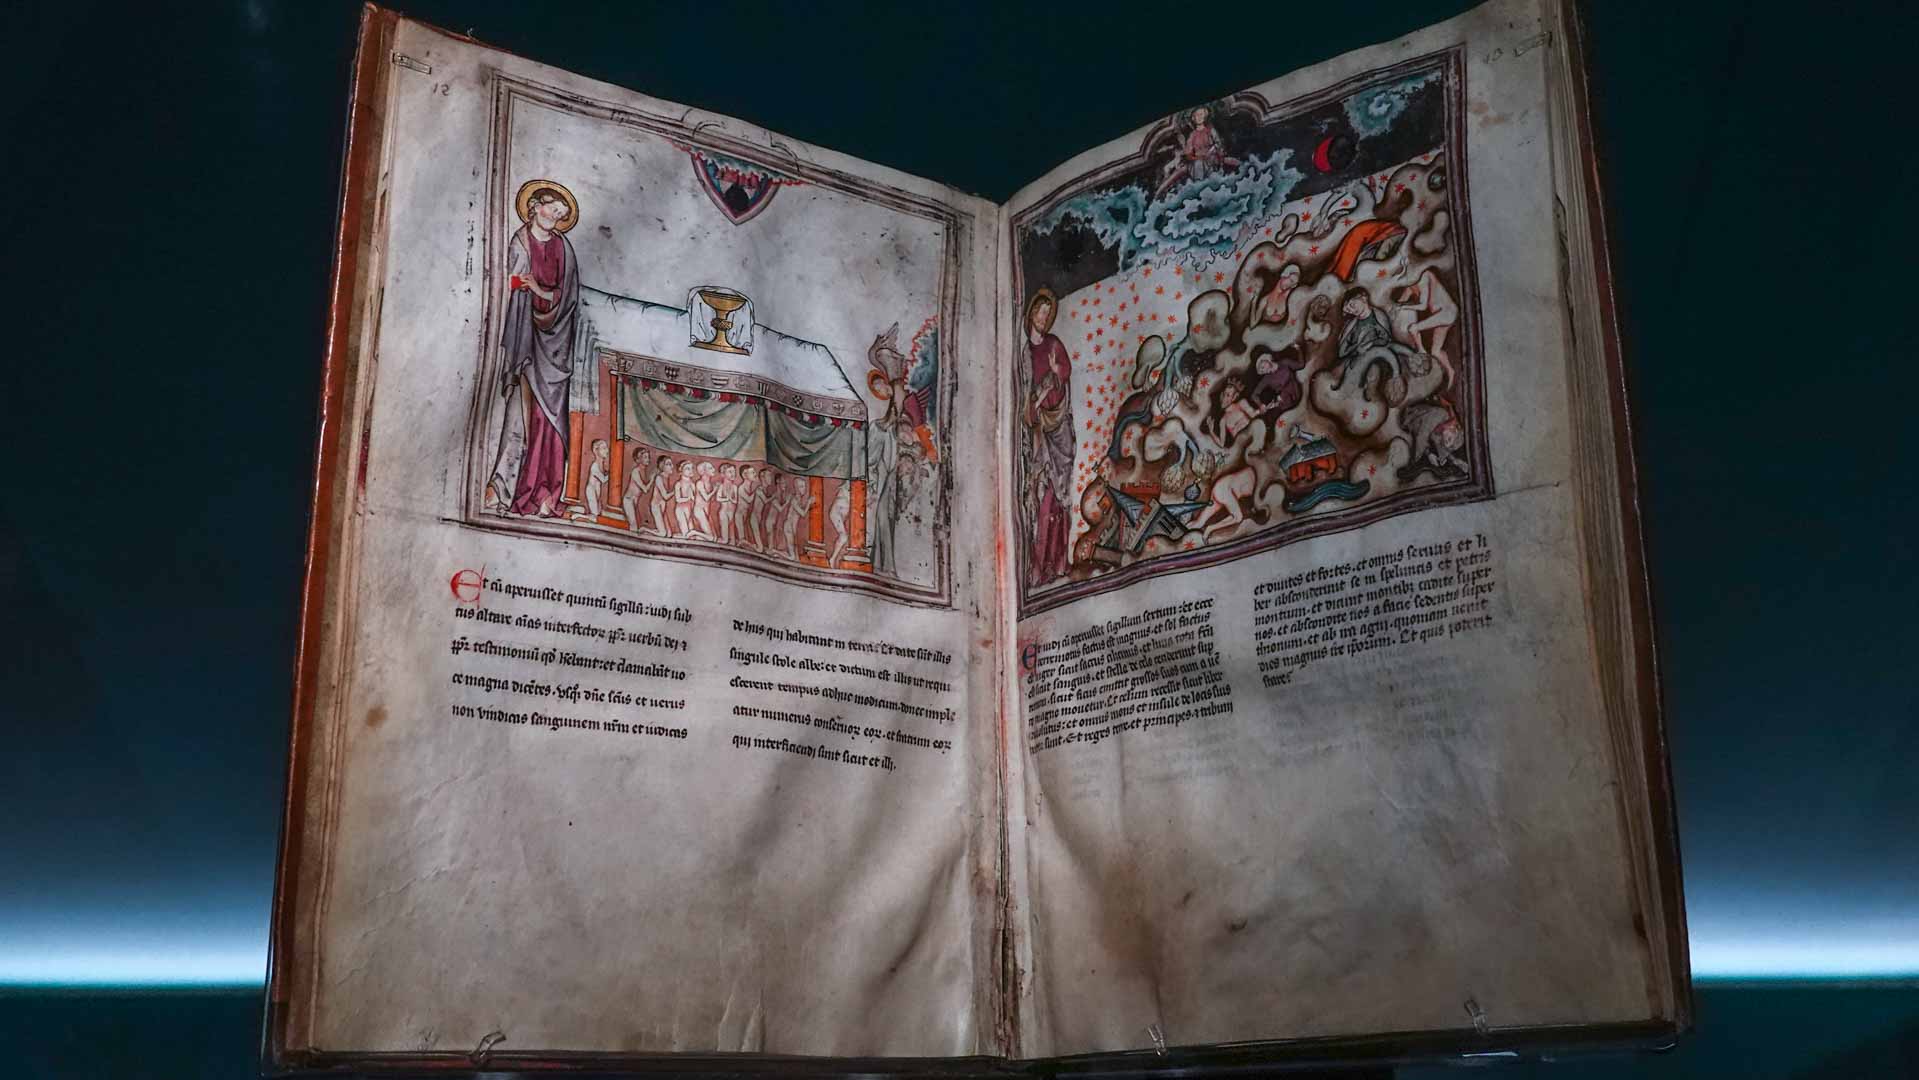 12
Et cū aperuisset quintū sigillū : uidi sub
tus altare aīas interfectoꝝ ꝓpt̄ uerbū dei ⁊
ꝓpt̄ testimoniū qđ hebant : et clamabāt uo
ce magna dicētes. Vsqꝫ dn̄e sc̄us et uerus
non vindicas sanguinem nr̄m et iudicas
de hiis qui habitant in terra. Et date sūt illis
singule stole albe : et dictum est illis ut requi
escerent tempus adhuc modicum. donec imple
atur numerus conseruoꝝ eoꝝ. et fratrum eoꝝ
qui interficiendi sunt sicut et illi.
13
Et uidi cū aperuisset sigillum sextum : et ecce
terremotus factus est magnus. et sol factus
niger sicut saccus cilicinus. et luna tota
sicut sanguis. et stelle de celo ceciderunt sup
sicut ficus emittit grossos suos cum a uē
magno mouetur. Et celum recessit sicut liber
et omnis mons et insule de locis suis
sunt. Et reges terre. et principes. ⁊ tribuni
et diuites et fortes. et omnis seruus et li
ber absconderunt se in speluncis et petris
montium. et dicunt montibꝫ cadite super
nos. et abscondite nos a facie sedentis super
thronum. et ab ira agni. quoniam uenit
dies magnus ire ipsorum. Et quis poterit
stare